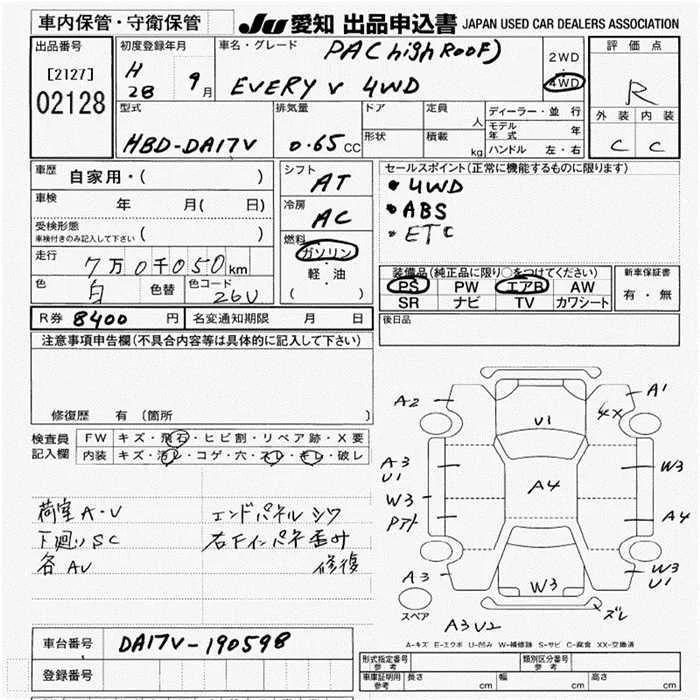 車内保管・守衛保管
JU 愛知 出品申込書 JAPAN USED CAR DEALERS ASSOCIATION
出品番号
[2127]
02128
初度登録年月
H 28 9月
車名・グレード
PA(high ROOF)
EVERY V 4WD
2WD
・
4WD
評価点
R
外装 内装
C C
型式
HBD-DA17V
排気量
0.65 CC
ドア
定員
人
形状
積載
kg
ディーラー・並行
モデル年式 年
ハンドル 左・右
車歴 自家用・( )
車検 年 月( 日)
受検形態
車検付きのみ記入して下さい ( )
走行 7万0千050km
色 白 色替 色コード 26U
シフト AT
冷房 AC
燃料
ガソリン
・
軽油
( )
セールスポイント(正常に機能するものに限ります)
・4WD
・ABS
・ETC
装備品(純正品に限り○をつけてください)
PS PW エアB AW
SR ナビ TV カワシート
新車保証書
有・無
R券 8400円 名変通知期限 月 日
後日品
注意事項申告欄(不具合内容等は具体的に記入して下さい)
修復歴 有(箇所 )
検査員記入欄
FW キズ・飛石・ヒビ割・リペア跡・X要
内装 キズ・汚レ・コゲ・穴・スレ・キレ・破レ
荷室A・U エンドパネルシワ
下廻りSC 右下インパネ歪み
各AU 修復
A2
A1
U1
4X
A3
U1
W3
A4
W3
Pアト
A4
A3
W3
W3
U1
スペア
A3U2
ズレ
A-キズ E-エクボ U-凹み W-補修跡 S-サビ C-腐食 XX-交換済
車台番号 DA17V-190598
登録番号
形式指定番号 参考
類別区分番号 参考
車庫証明用 参考 長さ cm 幅 cm 高さ cm